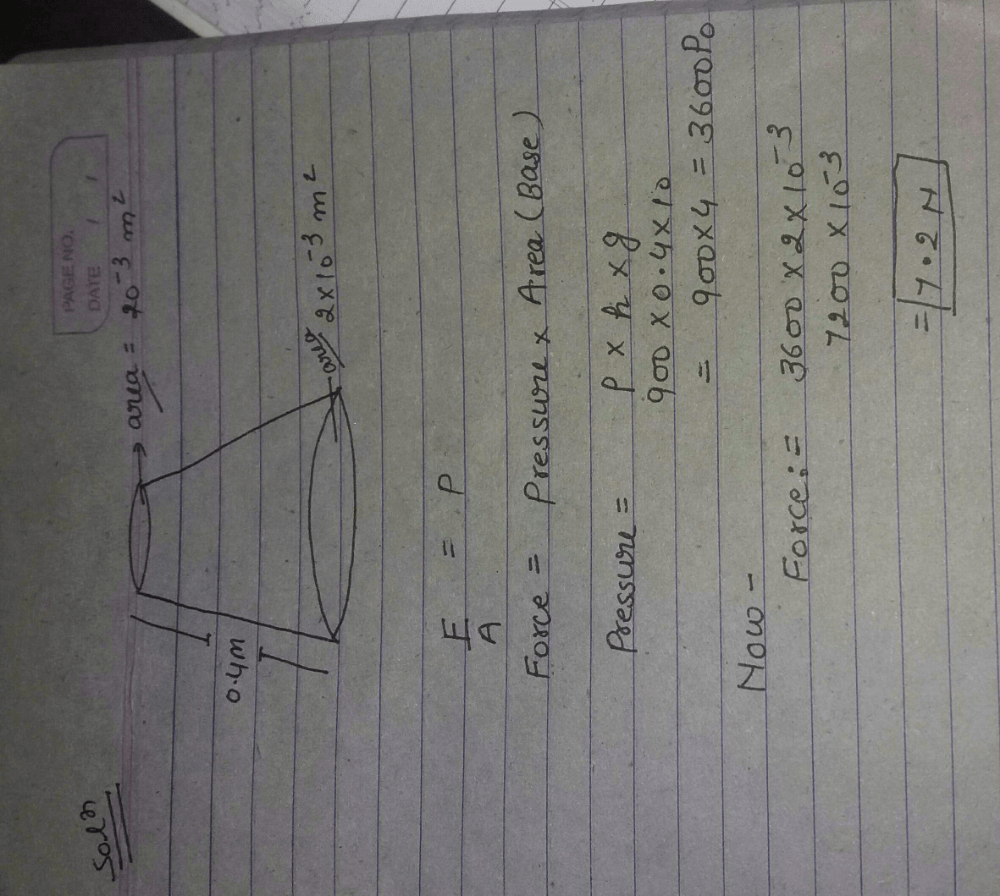 PAGE NO.
DATE / /
Solⁿ
→ area = 20⁻³ m²
0.4m
→ area 2×10⁻³ m²
F/A = P
Force = Pressure × Area (Base)
Pressure = ρ × h × g
900 × 0.4 × 10
= 900×4 = 3600Pa
Now -
Force := 3600 × 2 × 10⁻³
7200 × 10⁻³
= 7.2 N